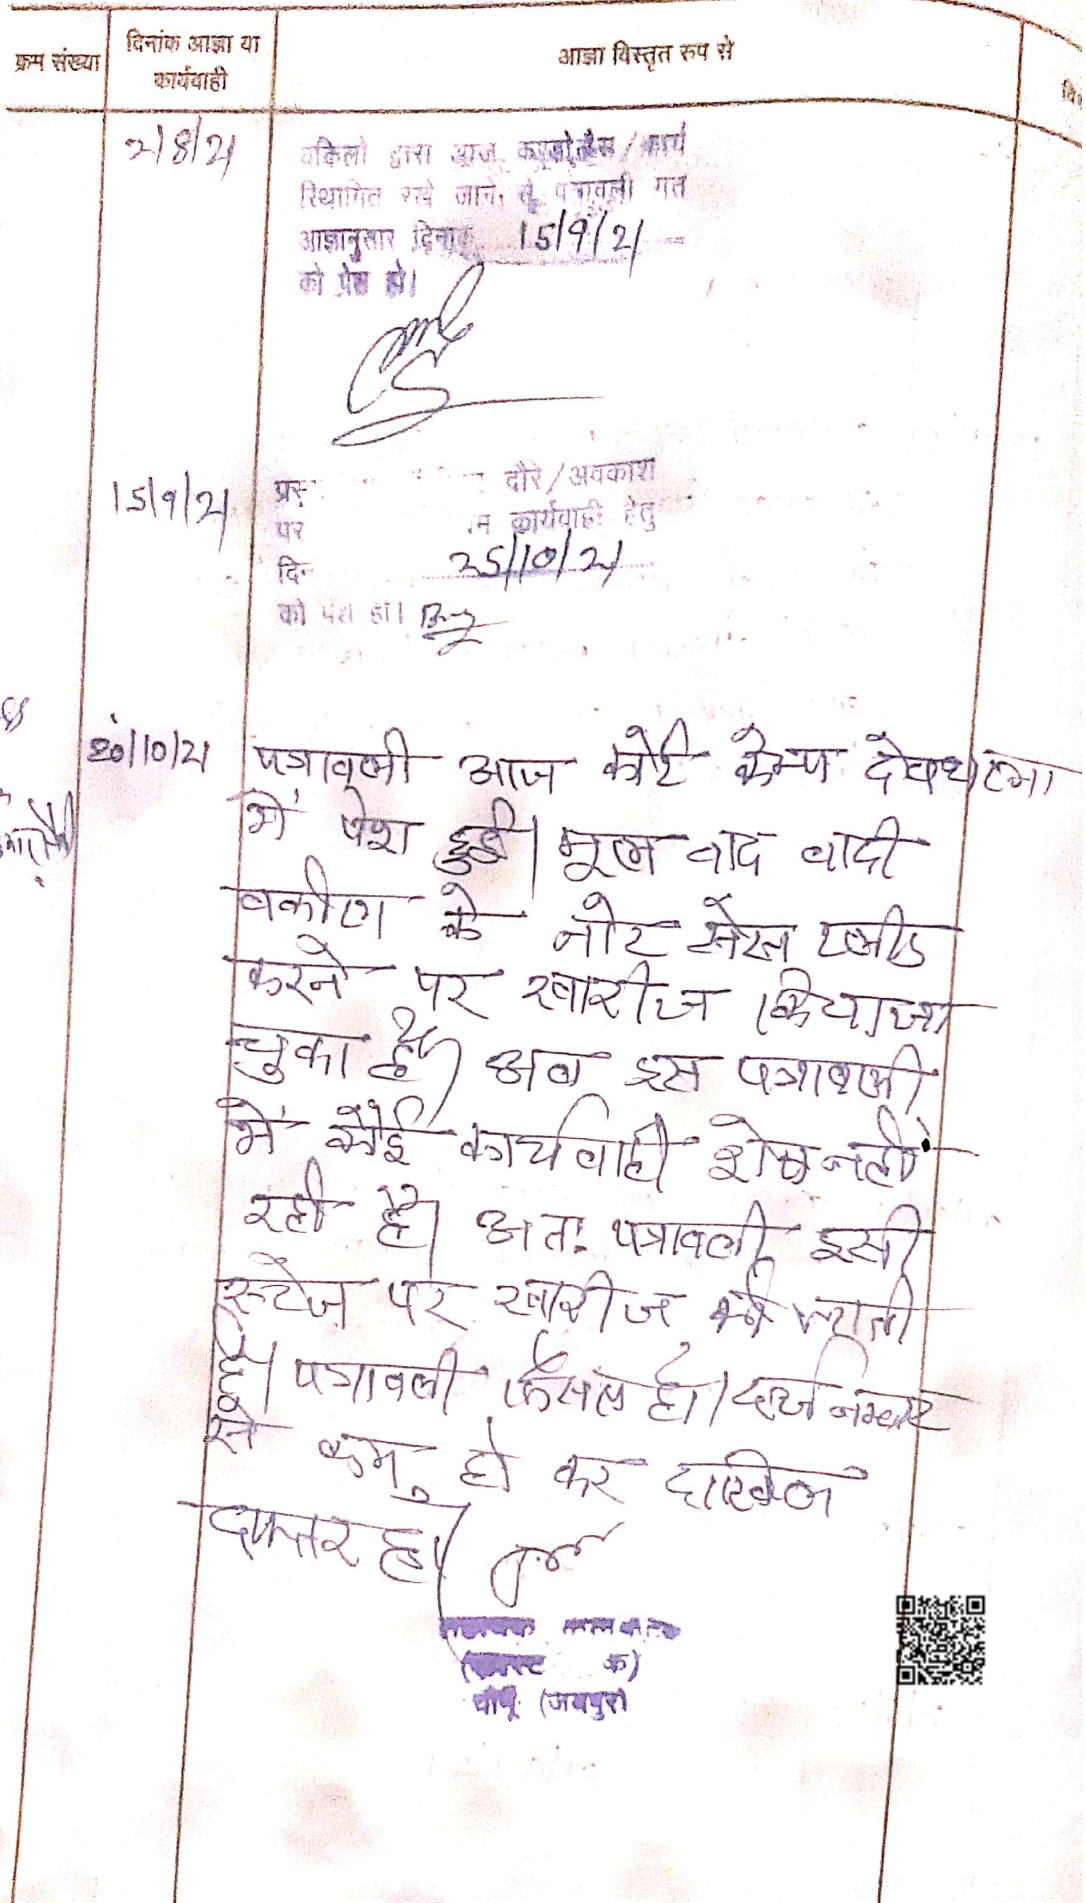 क्रम संख्या
दिनांक आज्ञा या
कार्यवाही
आज्ञा विस्तृत रुप से
2/8/21
वकिलो द्वारा आज कण्डोलेंस/कार्य
स्थिागित रखे जाने से पत्रावली गत
आज्ञानुसार दिनांक 15/9/21
को पेश हो।
15/9/21
दौरे/अवकाश
पर कार्यवाही हेतु
25/10/21
को पेश हो।
20/10/21
पत्रावली आज कोर्ट केम्प देवथला
में पेश हुई। मूल वाद वादी
वकील के नोट प्रेस प्लीड
करने पर खारीज किया जा
चुका है। अब इस पत्रावली
में कोई कार्यवाही शेष नही
रही है। अतः पत्रावली इसी
स्टेज पर खारीज की जाती
है। पत्रावली फैसल हो। दर्ज नम्बर
से कम हो कर दाखिल
दफ्तर हो।
चौमू (जयपुर)